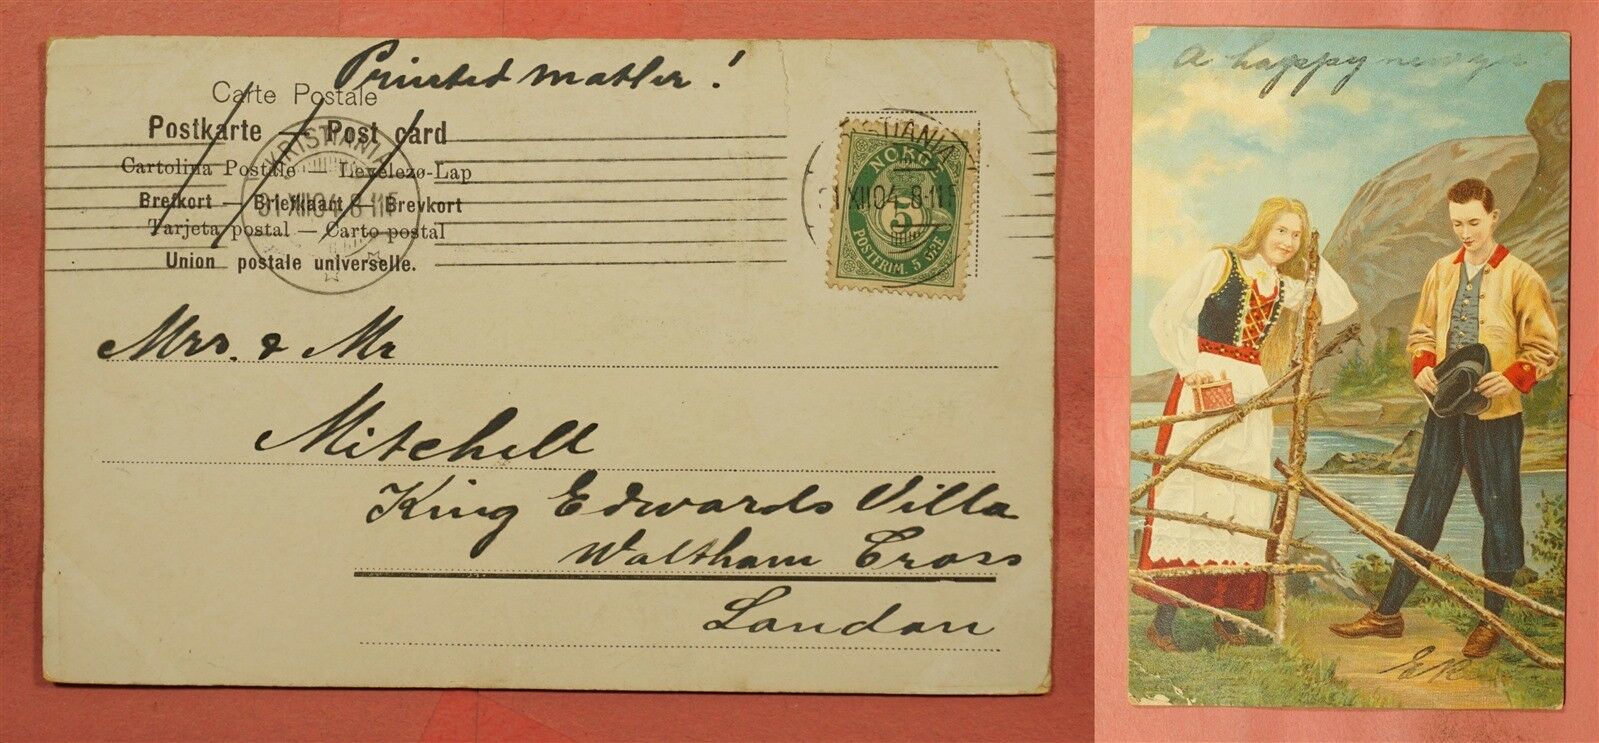 Printed matter!
Carte Postale
Postkarte — Post card
Cartolina Postale — Levelező-Lap
Brefkort — Briefkaart — Brevkort
Tarjeta postal — Carto postal
Union postale universelle.
KRISTIANIA
31 XII 04 8-11 F
KRISTIANIA
31 XII 04 8-11 F
NORGE
5
POSTFRIM. 5 ØRE
Mrs. & Mr
Mitchell
King Edwards Villa
Waltham Cross
London
A happy new yr